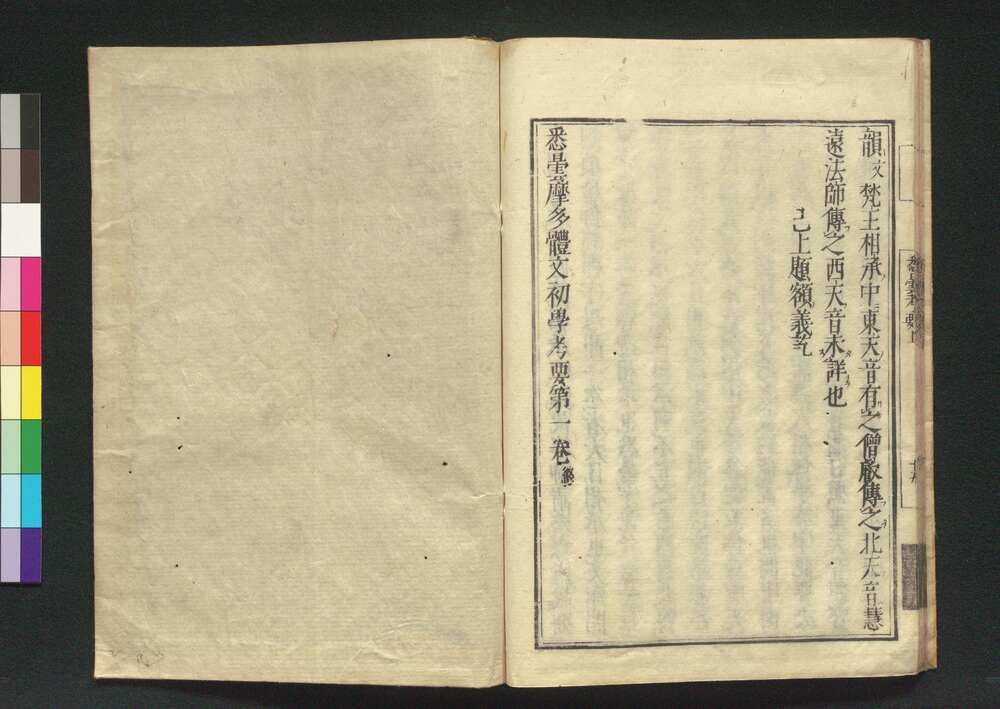 韻文梵王相承中東天音有之僧嚴傳之北天音慧
遠法師傳之西天音未詳也
已上題額義竟
悉曇摩多體文初學考要第一卷終